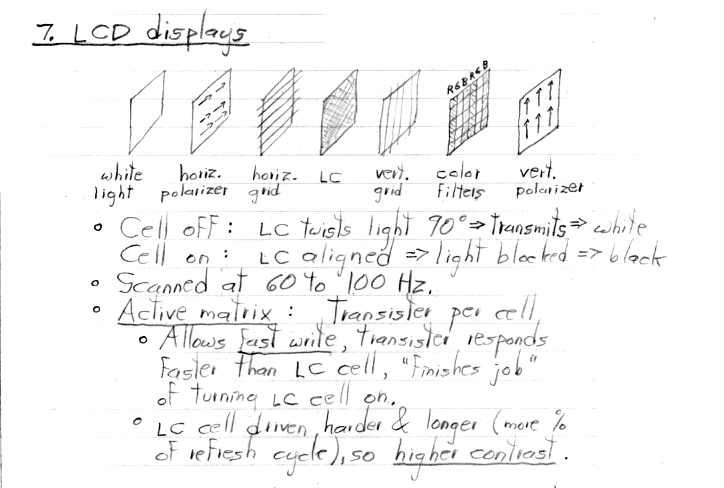 7. LCD displays
RGBRGB
white light
horiz. polarizer
horiz. grid
LC
vert. grid
color filters
vert. polarizer
• Cell off : LC twists light 90° ⇒ transmits ⇒ white
Cell on : LC aligned ⇒ light blocked ⇒ black
• Scanned at 60 to 100 Hz.
• Active matrix : Transister per cell,
• Allows fast write, transister responds
faster than LC cell, "finishes job"
of turning LC cell on.
• LC cell driven harder & longer (more %
of refresh cycle), so higher contrast.